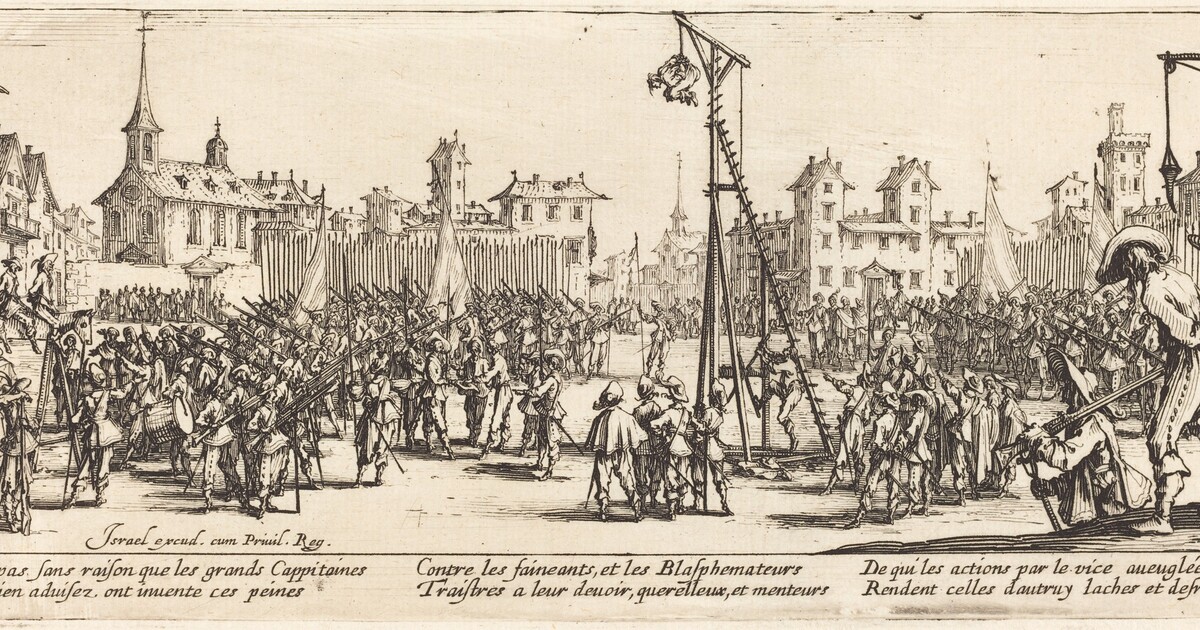 Israel excud. cum Priuil. Reg.
pas ſans raiſon que les grands Cappitaines
ien aduiſez, ont inuente ces peines
Contre les faineants, et les Blaſphemateurs
Traiſtres a leur deuoir, querelleux, et menteurs
De qui les actions par le vice
Rendent celles dautruy laches et